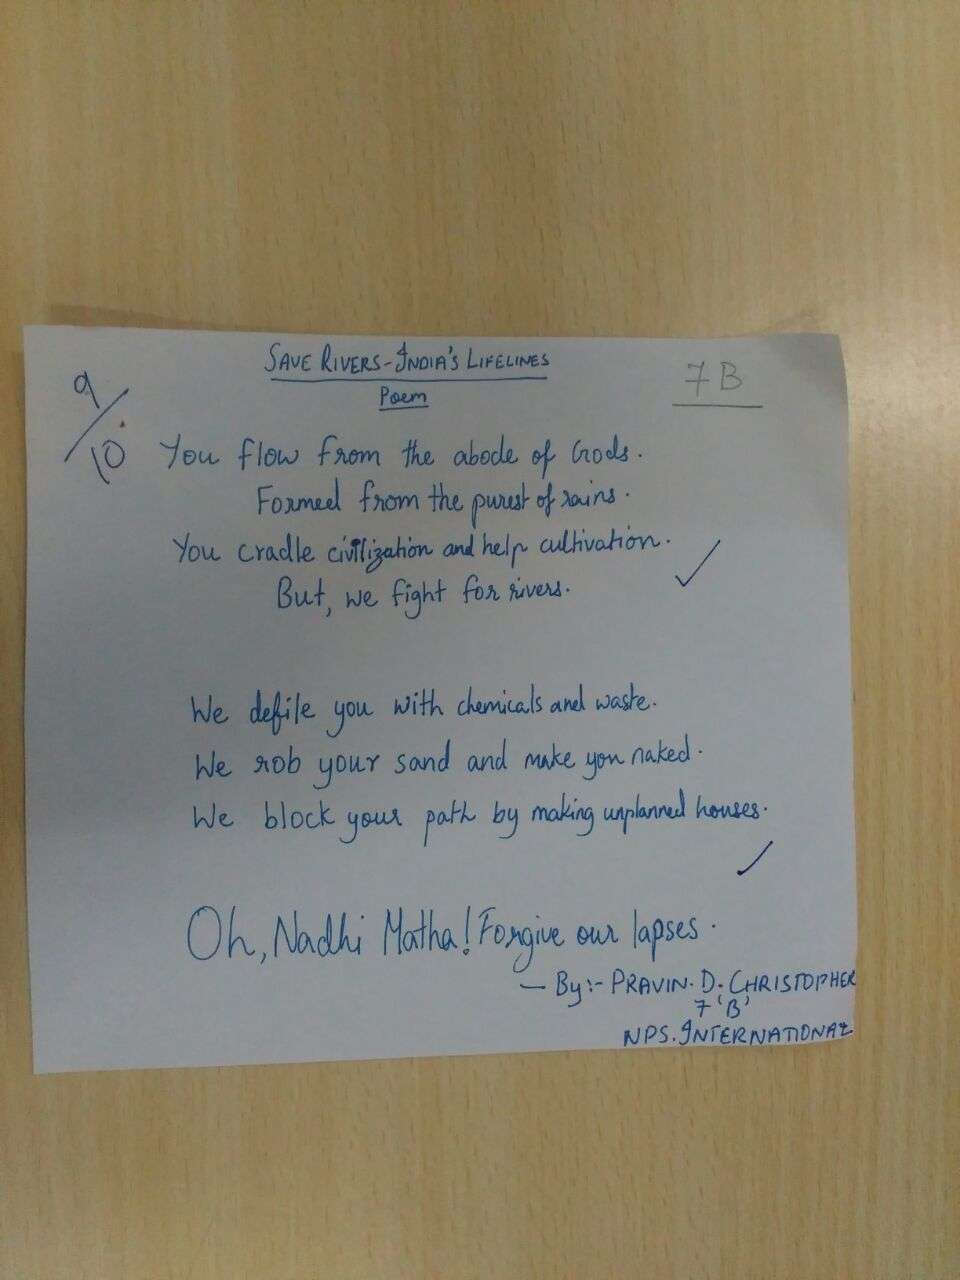 SAVE RIVERS-INDIA'S LIFELINES
Poem
7 B
9/10
You flow from the abode of Gods.
Formed from the purest of rains.
You cradle civilization and help cultivation.
But, we fight for rivers.
We defile you with chemicals and waste.
We rob your sand and make you naked.
We block your path by making unplanned houses.
Oh, Nadhi Matha! Forgive our lapses.
— By:- PRAVIN. D. CHRISTOPHER
7 'B'
NPS. INTERNATIONAL